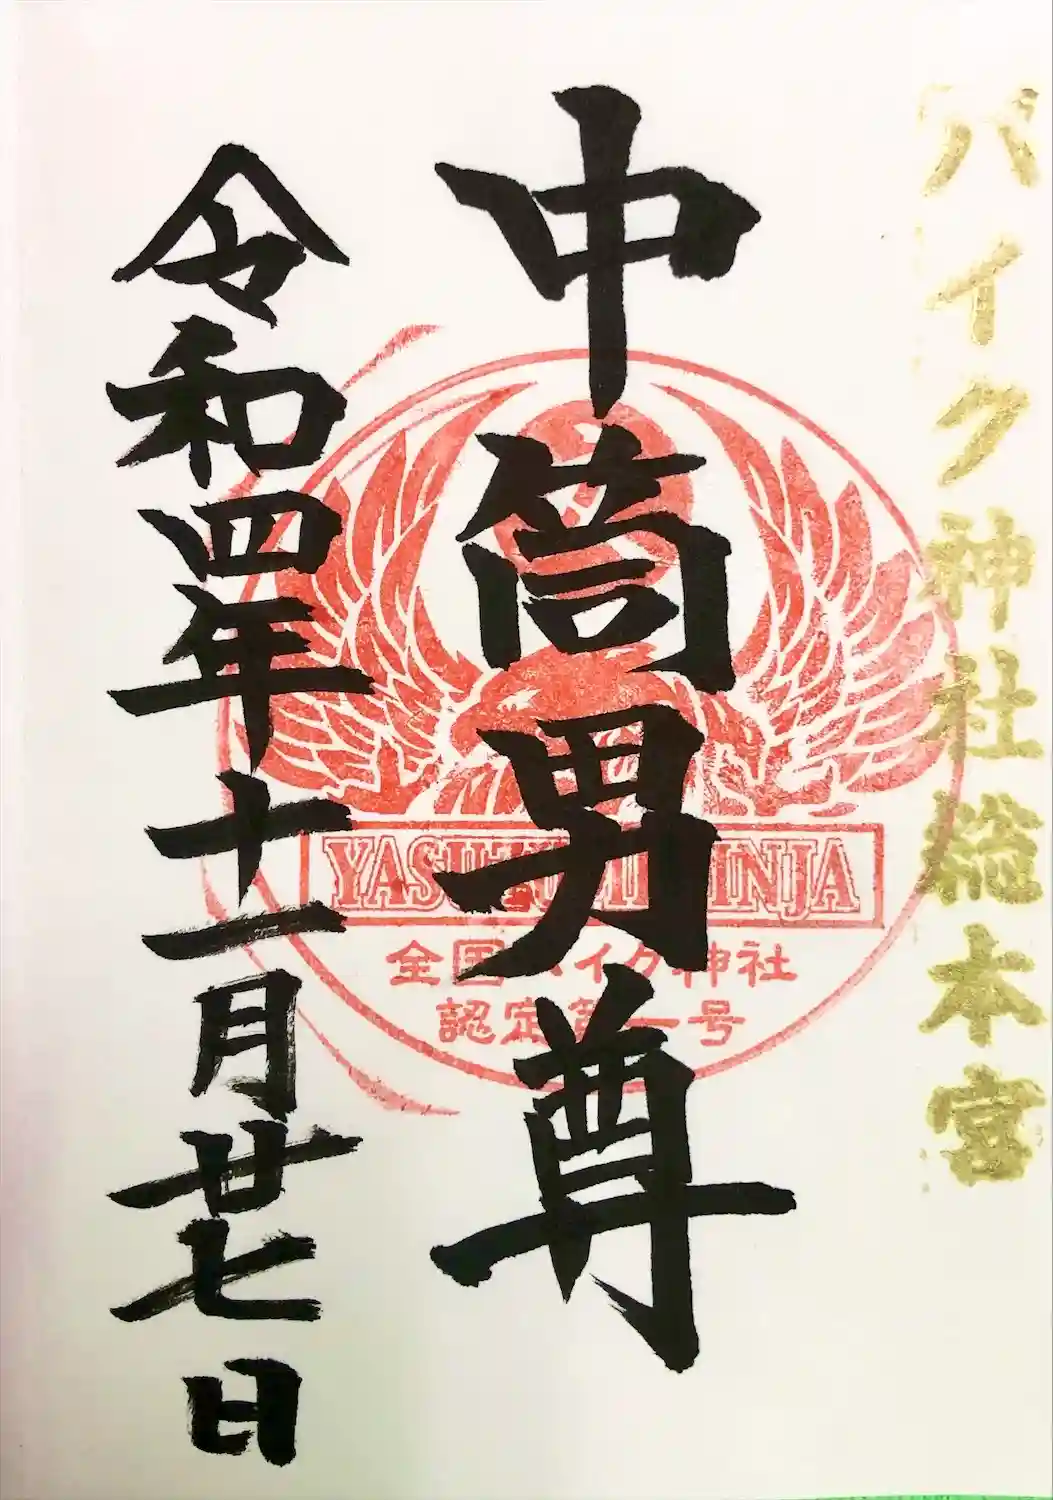 バイク神社総本宮
中筒男尊
令和四年十一月廿七日
全国バイク神社
認定第一号